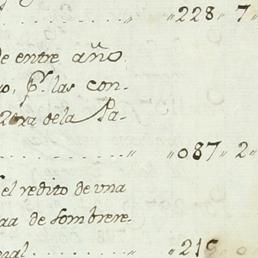 " 228 " 7 "
de entre año
o, pr. las con-
zera de la Pa-
" 087 " 2 "
el redito de una
de Sombrere-
" 219 " 0 "